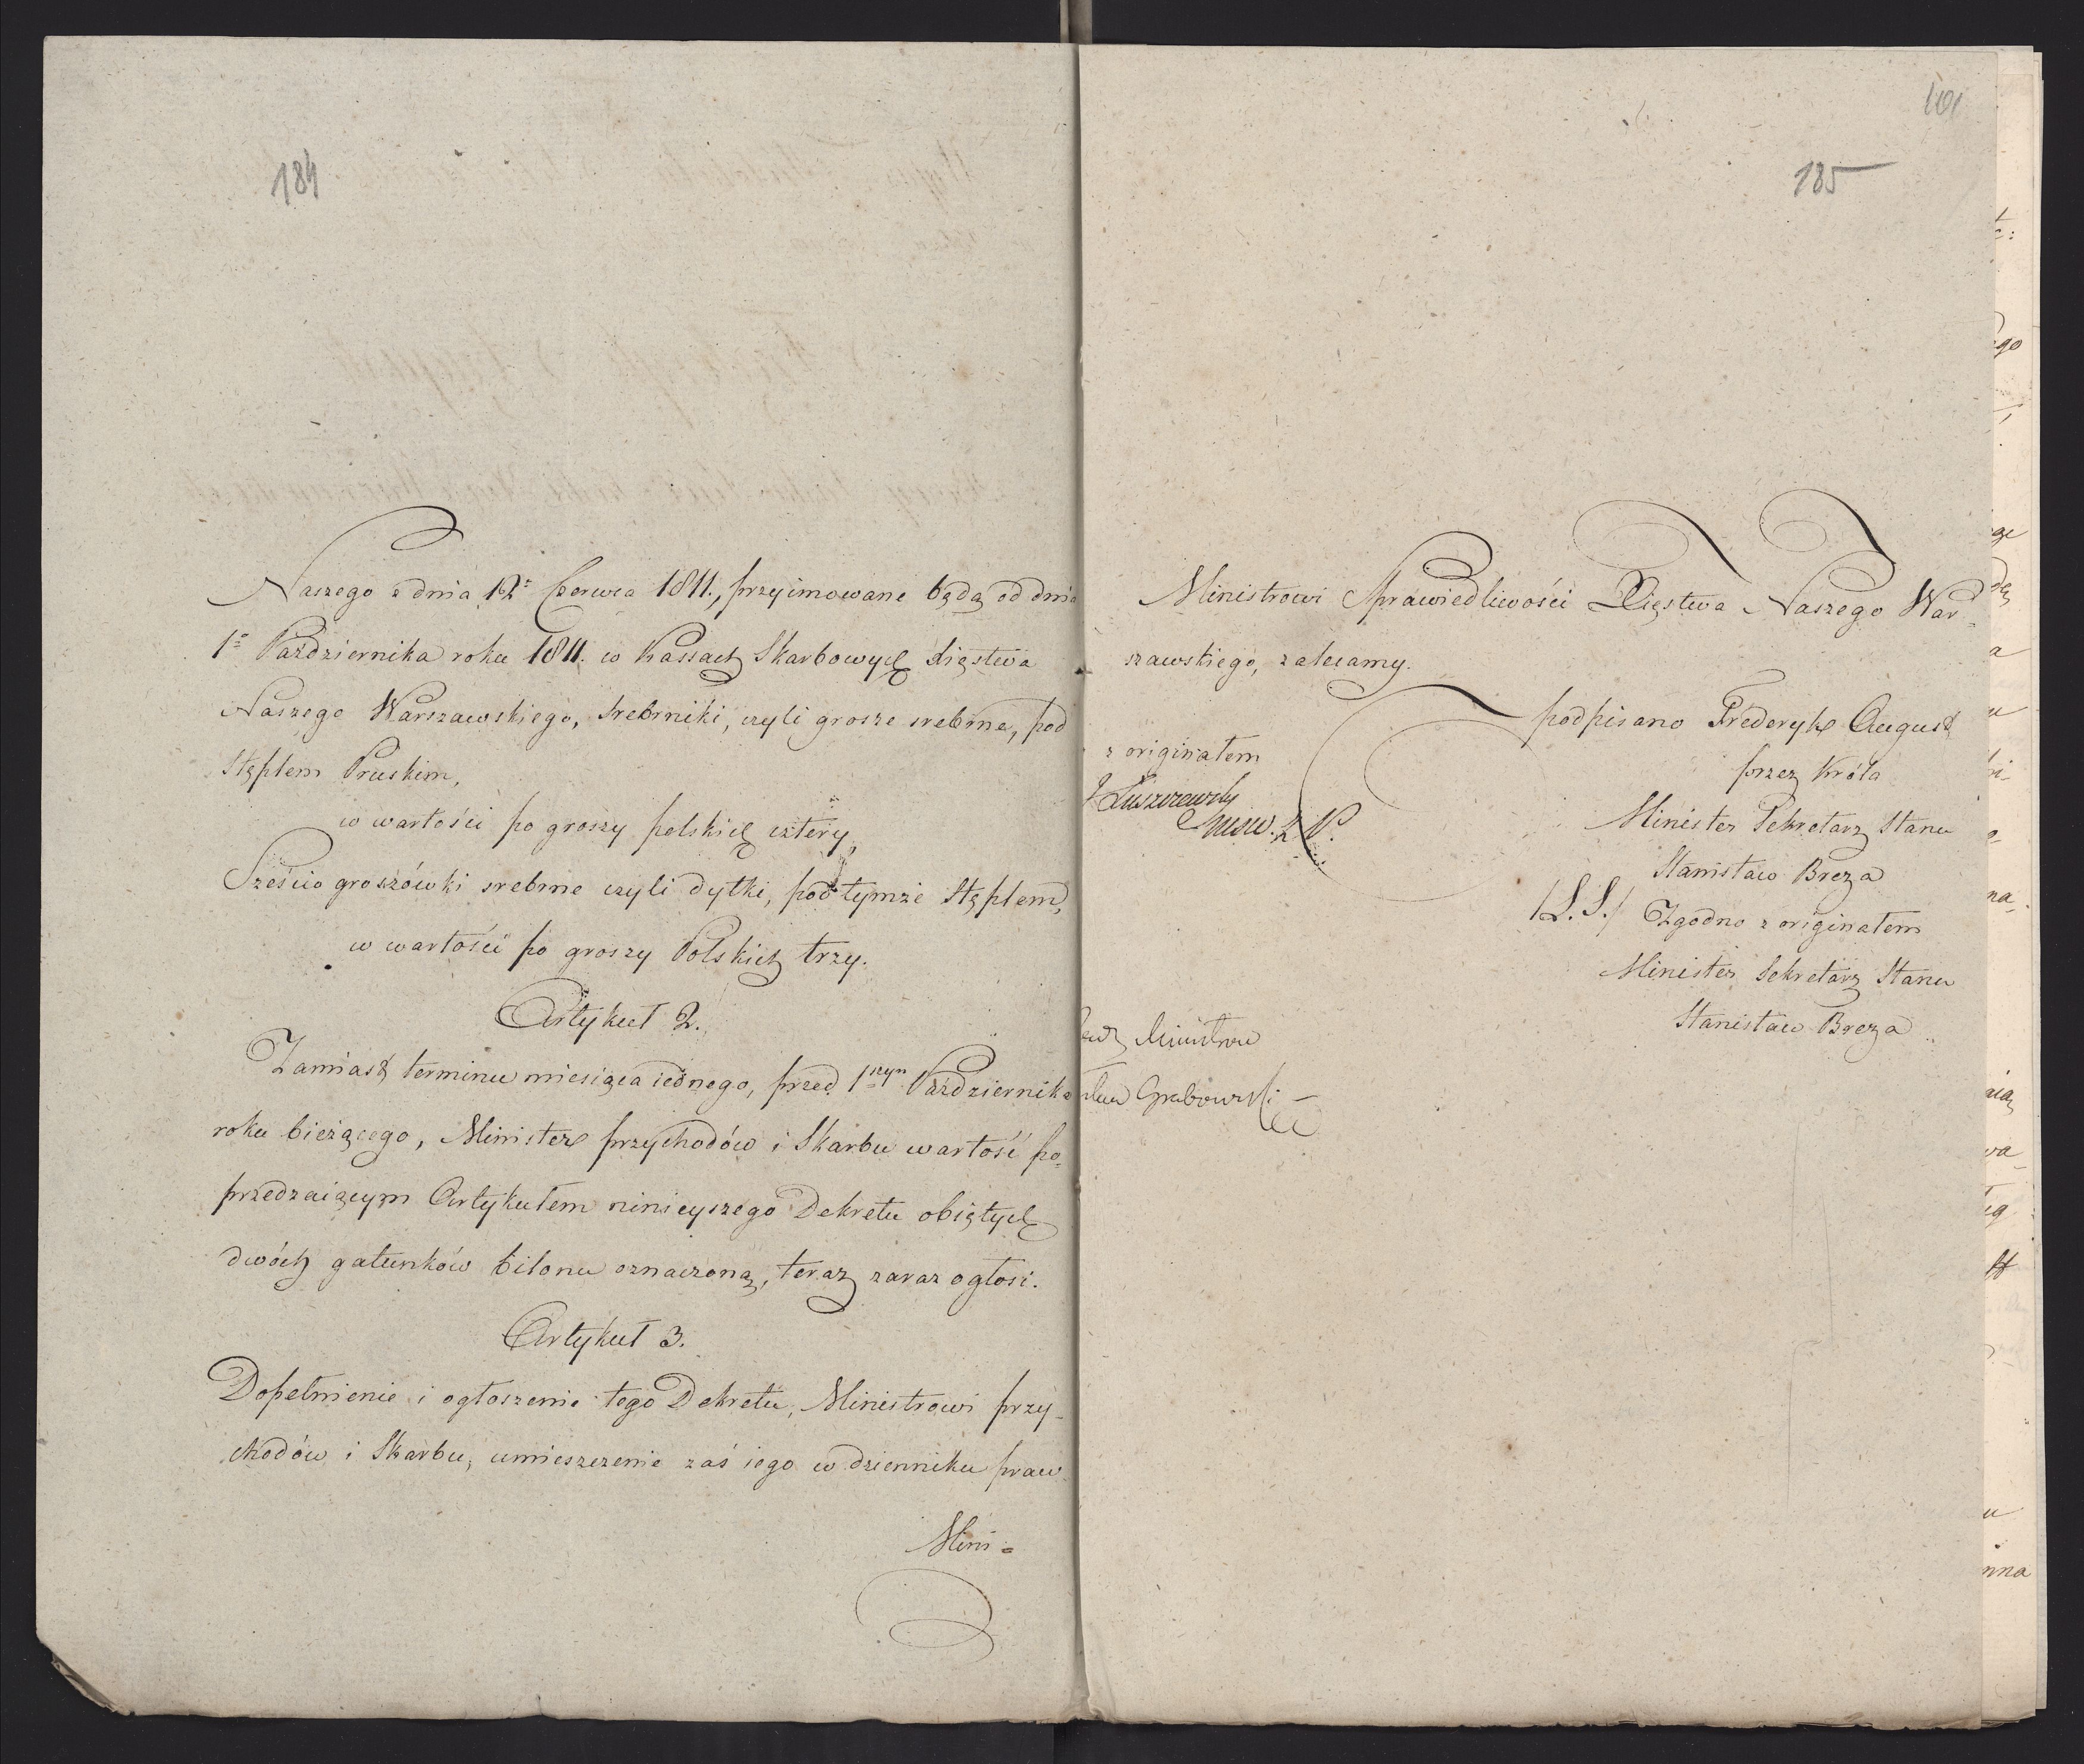 184
Naszego z dnia 12º Czerwca 1811., przyimowane będą od dnia
1º Października roku 1811. w Kassach Skarbowych Xięstwa
Naszego Warszawskiego, srebrniki, czyli grosze srebrne, pod
Stęplem Pruskim,
w wartości po groszy polskich cztery,
Sześcio groszówki srebrne czyli dytki, pod tymże Stęplem,
w wartości po groszy Polskich trzy.
Artykuł 2.
Zamiast terminu miesiąca iednego, przed 1szym Października
roku bieżącego, Minister przychodów i Skarbu wartość po-
przedzaiącym Artykułem ninieyszego Dekretu obiętych
dwóch gatunków bilonu oznaczoną, teraz zaraz ogłosi.
Artykuł 3.
Dopełnienie i ogłoszenie tego Dekretu, Ministrowi przy-
chodów i Skarbu, umieszczenie zaś iego w dzienniku praw
Mini=
101
185
Ministrowi Sprawiedliwości Xięstwa Naszego War-
szawskiego, zalecamy.
podpisano Frederyk August
przez Króla
Minister Sekretarz Stanu
Stanisław Breza
/L.S./ Zgodno z originałem
Minister Sekretarz Stanu
Stanisław Breza
z originałem
J Łuszczewsky
Ministrów
Grabowski